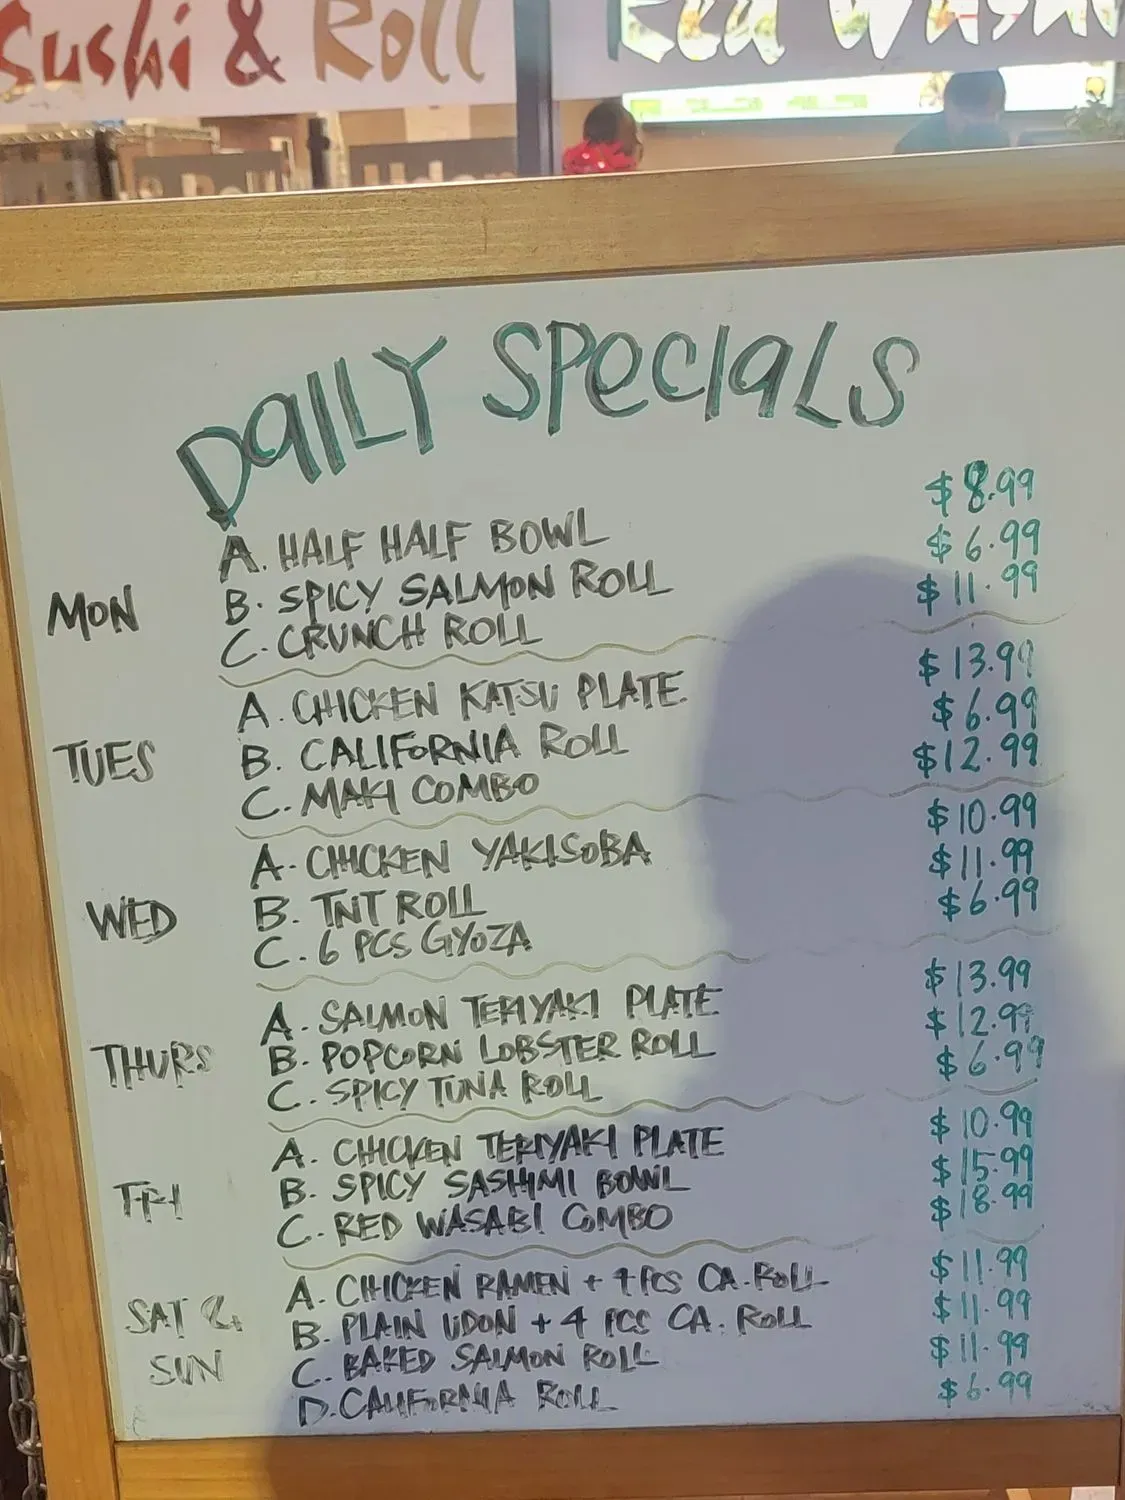 Sushi & Roll
Red Wasabi
DaILY SPecIaLS
MON
A. HALF HALF BOWL $8.99
B. SPICY SALMON ROLL $6.99
C. CRUNCH ROLL $11.99
TUES
A. CHICKEN KATSU PLATE $13.99
B. CALIFORNIA ROLL $6.99
C. MAKI COMBO $12.99
WED
A. CHICKEN YAKISOBA $10.99
B. TNT ROLL $11.99
C. 6 PCS GYOZA $6.99
THURS
A. SALMON TERIYAKI PLATE $13.99
B. POPCORN LOBSTER ROLL $12.99
C. SPICY TUNA ROLL $6.99
FRI
A. CHICKEN TERIYAKI PLATE $10.99
B. SPICY SASHIMI BOWL $15.99
C. RED WASABI COMBO $18.99
SAT &
SUN
A. CHICKEN RAMEN + 4 PCS CA. ROLL $11.99
B. PLAIN UDON + 4 PCS CA. ROLL $11.99
C. BAKED SALMON ROLL $11.99
D. CALIFORNIA ROLL $6.99